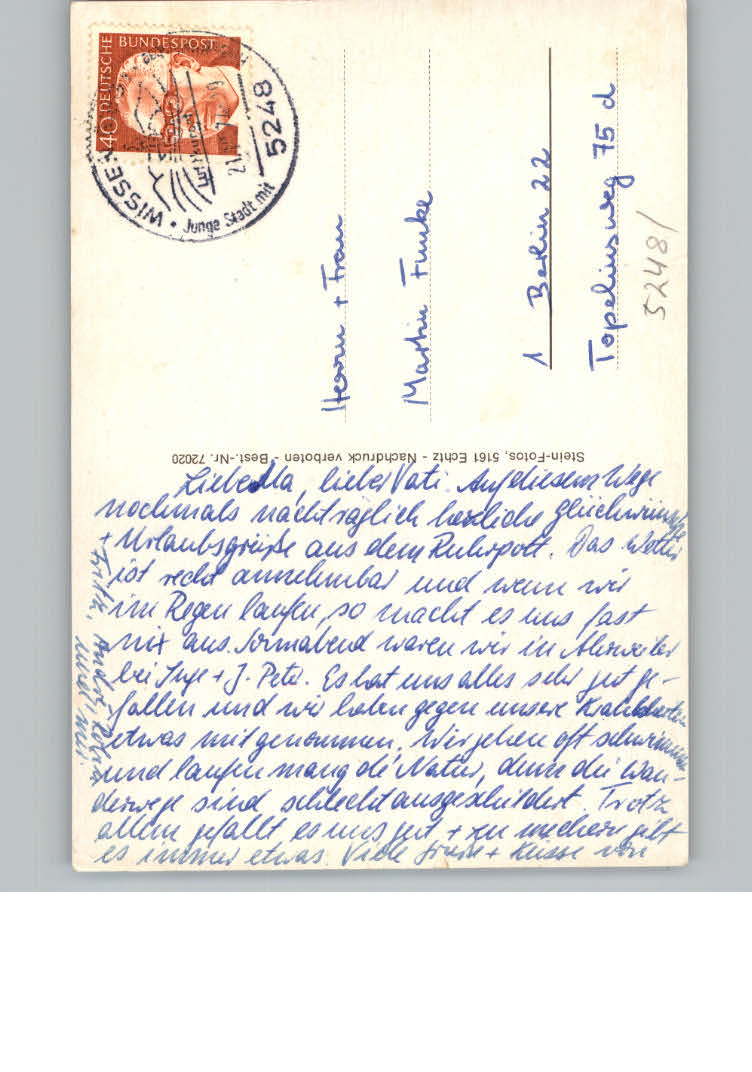 DEUTSCHE BUNDESPOST
40
WISSEN
5248
Junge Stadt mit
Herrn + Frau
Martin Funke
1 Berlin 22
Topeliusweg 75 d
5248/
Stein-Fotos, 5161 Echtz - Nachdruck verboten - Best.-Nr. 72020
Liebe Ma, lieber Vati. Auf diesem Wege
nochmals nachträglich herzliche Glückwünsche
+ Urlaubsgrüße aus dem Ruhrpott. Das Wetter
ist recht annehmbar und wenn wir
im Regen laufen, so macht es uns fast
nix aus. Sonnabend waren wir in Ahrweiler
bei Inge + J. Peter. Es hat uns alles sehr gut ge-
fallen und wir haben gegen unsere
etwas mitgenommen. Wir gehen oft schwimmen
und laufen mang de' Natur, denn die Wan-
derwege sind schlecht ausgeschildert. Trotz
allem gefällt es uns gut + zu meckern gibt
es immer etwas. Viele Grüße + Küsse von